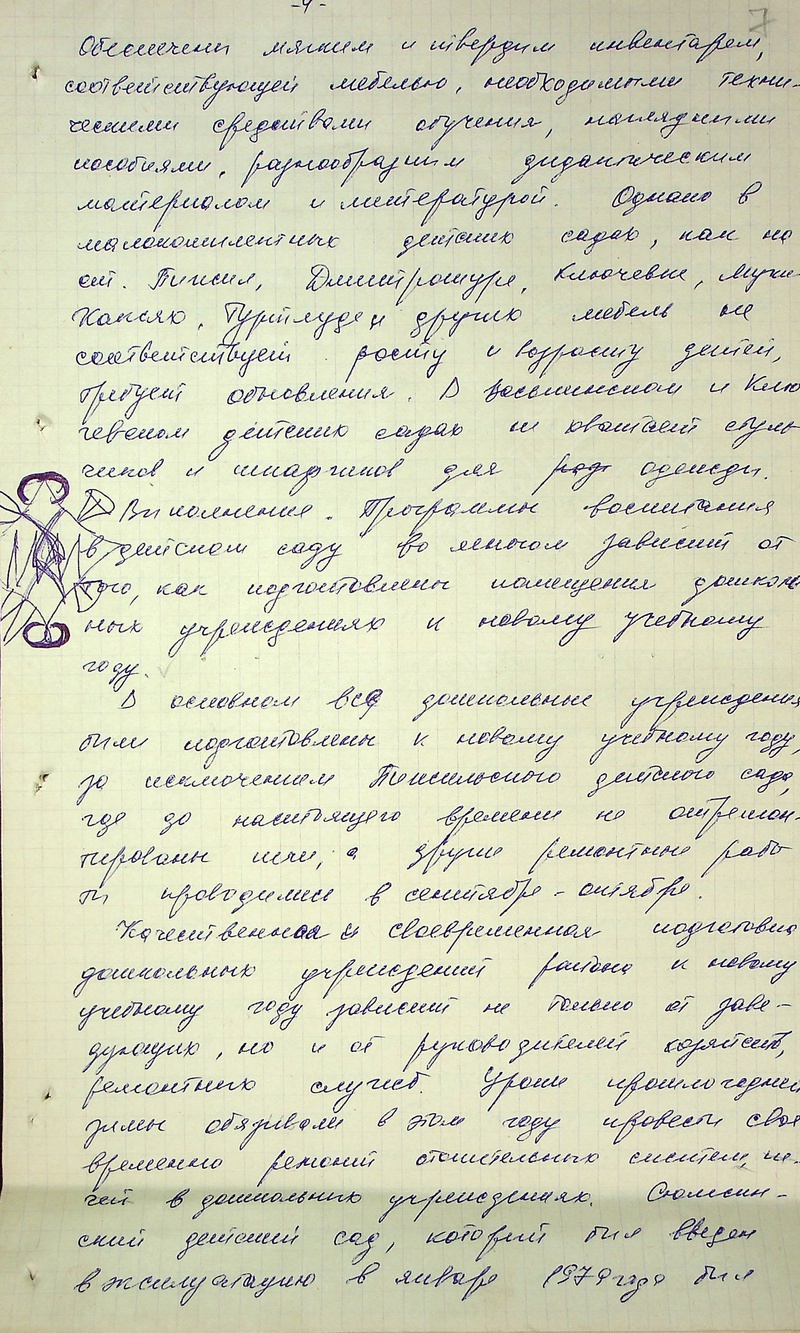 -4-
7
Обеспечены мягким и твердым инвентарем,
соответствующей мебелью, необходимыми техни-
ческими средствами обучения, наглядными
пособиями, разнообразным дидактическим
материалом и литературой. Однако в
малокомплектных детских садах, как на
ст. Пижил, Дмитрошуре, Ключевке,
Какся, и других мебель не
соответствует росту и возрасту детей,
требует обновления. В и Клю
чевском детских садах не хватает стуль
чиков и шкафчиков для одежды.
Выполнение Программы воспитания
в детском саду во многом зависит от
того, как подготовлены помещения дошколь
ных учреждениях к новому учебному
году.
В основном все дошкольные учреждения
были подготовлены к новому учебному году,
за исключением Пижильского детского сада,
где до настоящего времени не отремон-
тированы печи, а другие ремонтные рабо
ты проводились в сентябре - октябре.
Качественная и своевременная подготовка
дошкольных учреждений района к новому
учебному году зависит не только от заве-
дующих, но и от руководителей хозяйств,
ремонтных служб. Уроки прошлогодней
зимы обязывали в этом году провести свое
временно ремонт отопительных систем, пе-
чей в дошкольных учреждениях. Сюмсин-
ский детский сад, который был введен
в эксплуатацию в январе 1979 года был